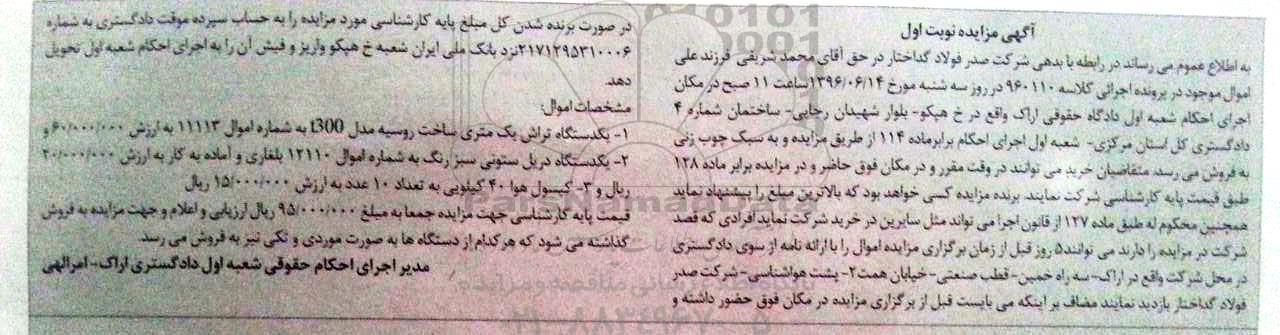 آگهی مزایده نوبت اول
به اطلاع عموم می رساند در رابطه با بدهی شرکت صدر فولاد گداختار در حق آقای محمد شریفی فرزند علی
اموال موجود در پرونده اجرائی کلاسه ۹۶۰۱۱۰ در روز سه شنبه مورخ ۱۳۹۶/۰۶/۱۴ ساعت ۱۱ صبح در مکان
اجرای احکام شعبه اول دادگاه حقوقی اراک واقع در خ هپکو- بلوار شهیدان رجایی- ساختمان شماره ۴
دادگستری کل استان مرکزی- شعبه اول اجرای احکام برابر ماده ۱۱۴ از طریق مزایده و به سبک چوب زنی
به فروش می رسد. متقاضیان خرید می توانند در وقت مقرر و در مکان فوق حاضر و در مزایده برابر ماده ۱۲۸
طبق قیمت پایه کارشناسی شرکت نمایند. برنده مزایده کسی خواهد بود که بالاترین مبلغ را پیشنهاد نماید
همچنین محکوم له طبق ماده ۱۲۷ از قانون اجرا می تواند مثل سایرین در خرید شرکت نماید افرادی که قصد
شرکت در مزایده را دارند می توانند ۵ روز قبل از زمان برگزاری مزایده اموال را با ارائه نامه از سوی دادگستری
در محل شرکت واقع در اراک- سه راه خمین- قطب صنعتی- خیابان همت ۲- پشت هواشناسی- شرکت صدر
فولاد گداختار بازدید نمایند مضاف بر اینکه می بایست قبل از برگزاری مزایده در مکان فوق حضور داشته و
در صورت برنده شدن کل مبلغ پایه کارشناسی مورد مزایده را به حساب سپرده موقت دادگستری به شماره
۲۱۷۱۲۹۵۳۱۰۰۰۶ نزد بانک ملی ایران شعبه خ هپکو واریز و فیش آن را به اجرای احکام شعبه اول تحویل
دهد.
مشخصات اموال:
۱- یکدستگاه تراش یک متری ساخت روسیه مدل t300 به شماره اموال ۱۱۱۱۳ به ارزش ۶۰/۰۰۰/۰۰۰ و
۲- یکدستگاه دریل ستونی سبز رنگ به شماره اموال ۱۲۱۱۰ بلغاری و آماده به کار به ارزش ۲۰/۰۰۰/۰۰۰
ریال و ۳- کپسول هوا ۴۰ کیلویی به تعداد ۱۰ عدد به ارزش ۱۵/۰۰۰/۰۰۰ ریال
قیمت پایه کارشناسی جهت مزایده جمعا به مبلغ ۹۵/۰۰۰/۰۰۰ ریال ارزیابی و اعلام و جهت مزایده به فروش
گذاشته می شود که هرکدام از دستگاه ها به صورت موردی و تکی نیز به فروش می رسد.
مدیر اجرای احکام حقوقی شعبه اول دادگستری اراک- امرالهی
ParsNamadData